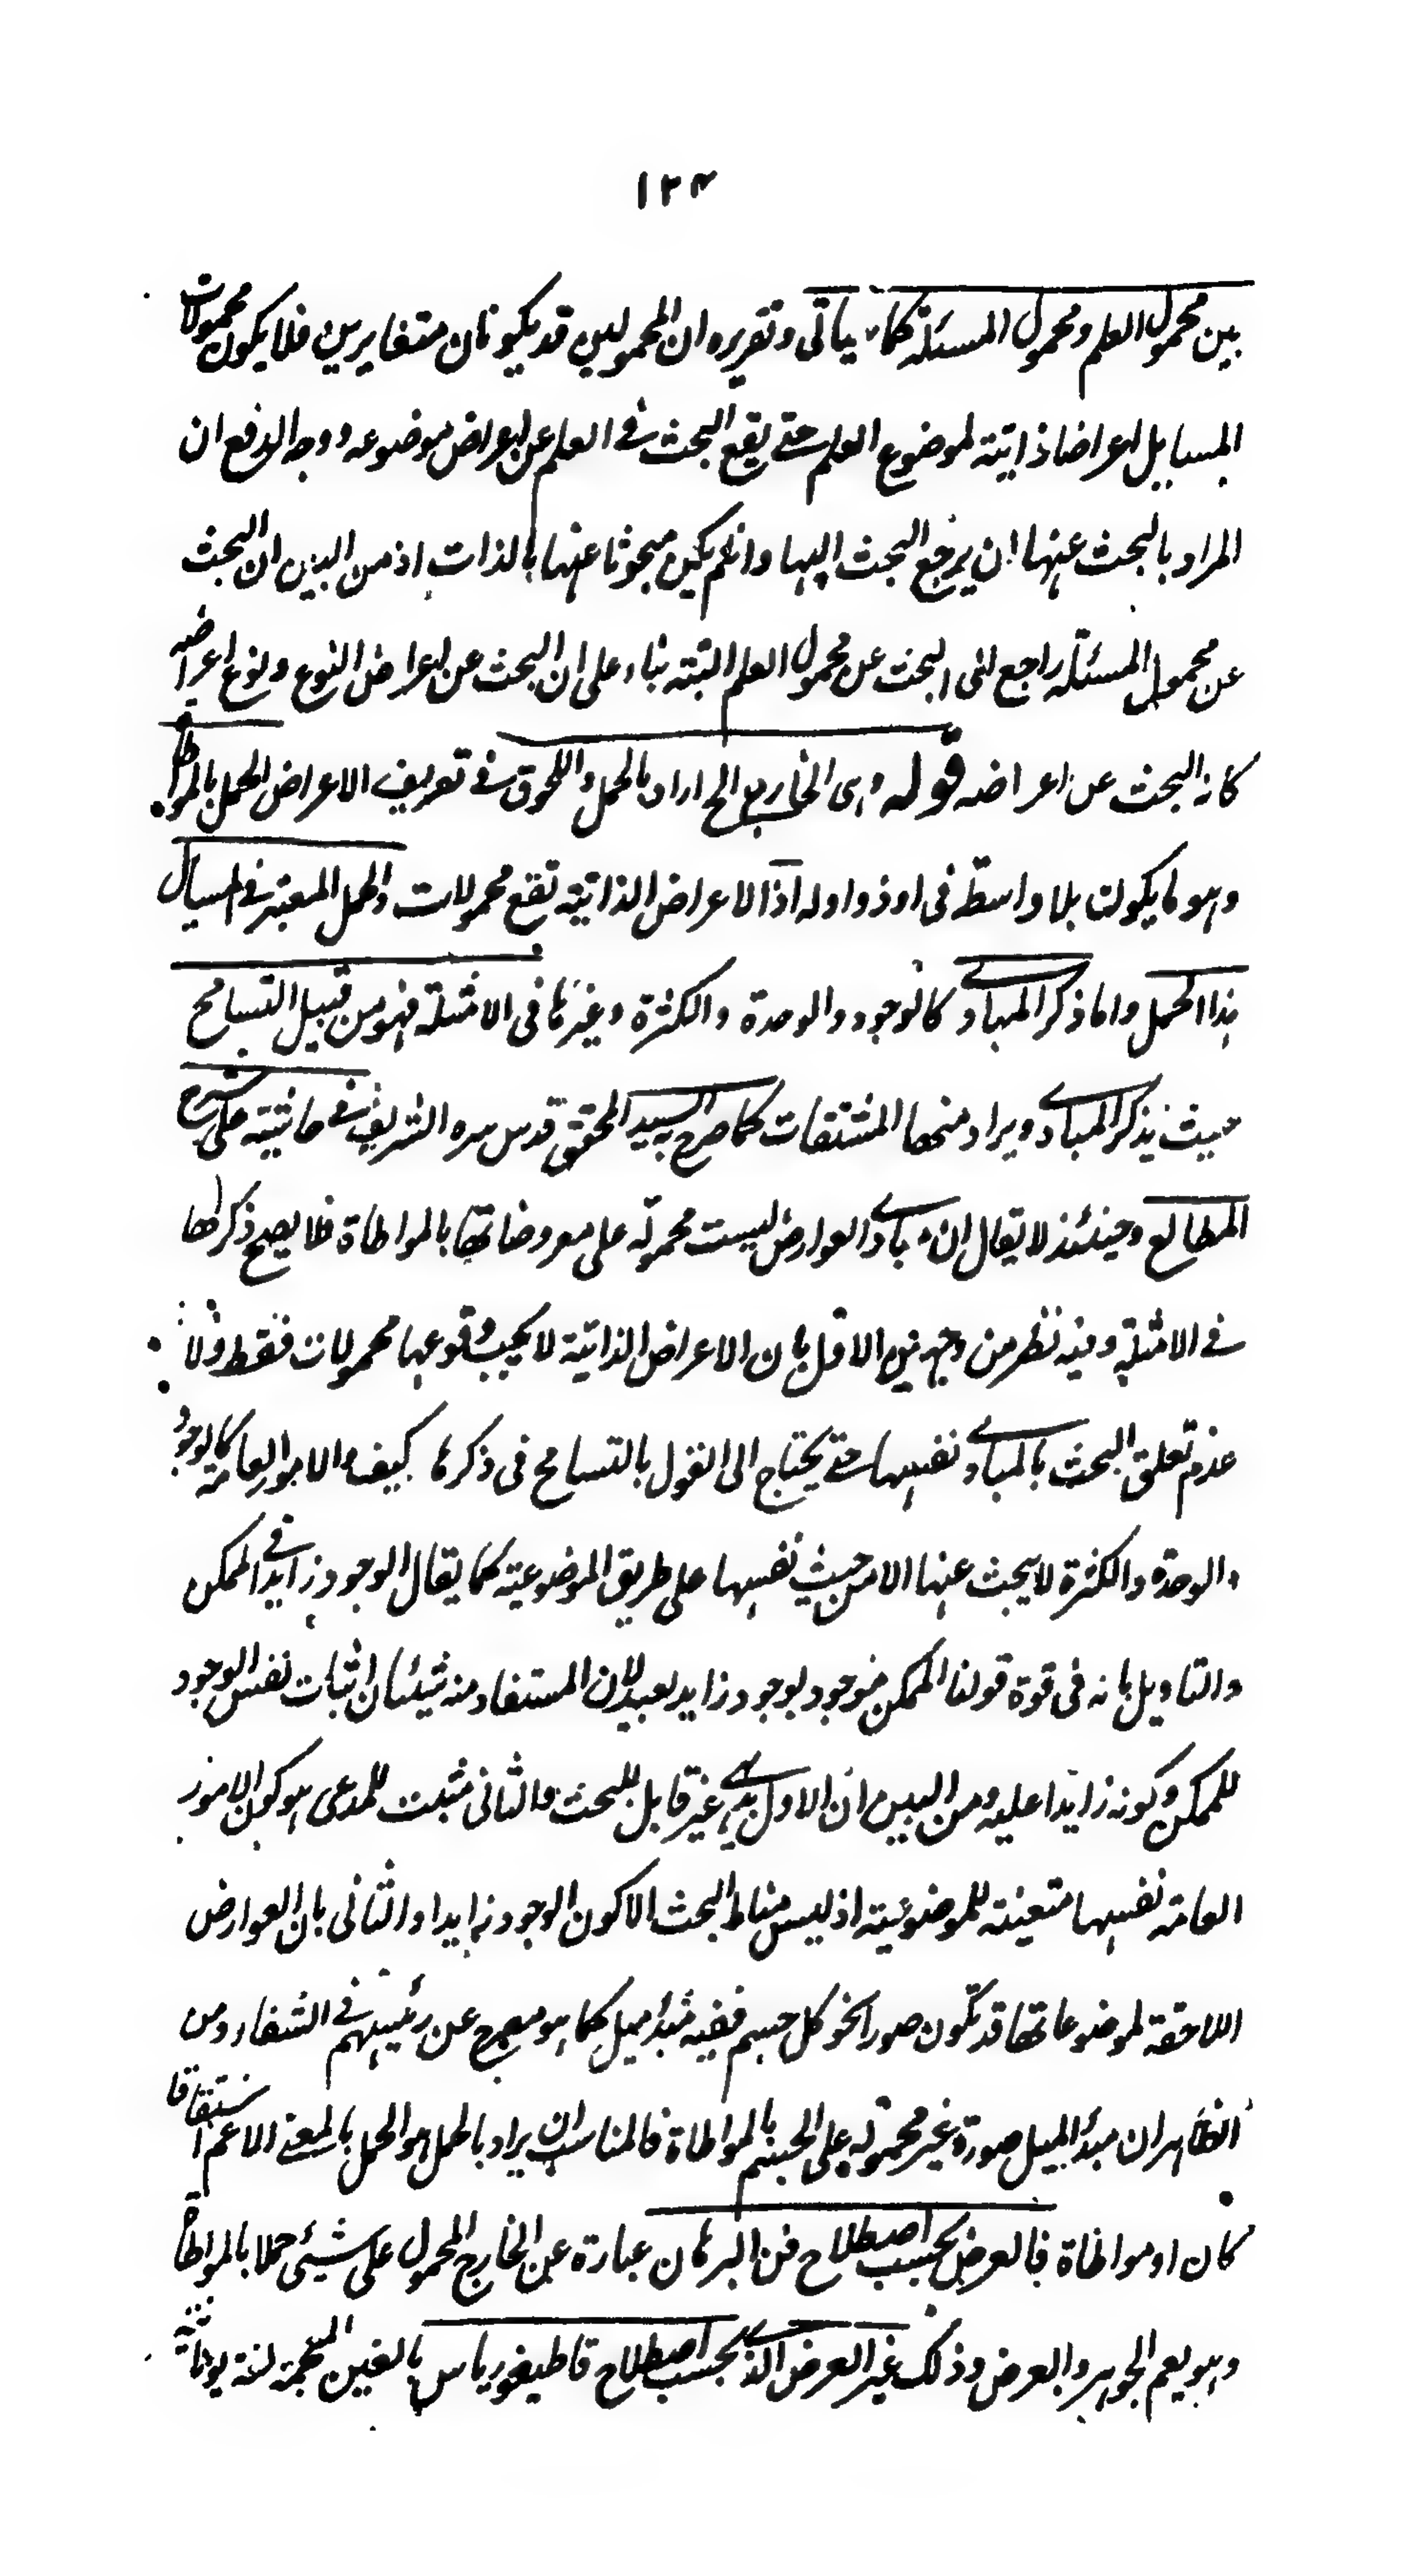 ١٢٤
بين محمول العلم ومحمول المسئلة كما سياتى وتقريره ان المحمولين قد يكونان متغايرين فلا يكون محمولات
المسايل اعراضا ذاتية لموضوع العلم حتى يقع البحث فى العلم عن اعراض موضوعه ووجه الدفع ان
المراد بالبحث عنها ان يرجع البحث اليها وان لم يكن مبحوثا عنها بالذات اذ من البين ان البحث
عن محمول المسئلة راجع الى البحث عن محمول العلم البتة بناء على ان البحث عن اعراض النوع ونوع اعراضه
كانه البحث عن اعراضه قوله وهى الخارج الخ اراد بالحمل واللحوق فى تعريف الاعراض الحمل بالمواطاة
وهو ما يكون بلا واسطة فى او ذو او له اذ الاعراض الذاتية تقع محمولات والحمل المعتبر فى المسايل
هذا الحمل واما ذكر المبادى كالوجود والوحدة والكثرة وغيرها فى الامثلة فهو من قبيل التسامح
حيث يذكر المبادى ويراد منها المشتقات كما صرح به السيد المحقق قدس سره الشريف فى حاشيته على شرح
المطالع وحينئذ لا يقال ان مبادى العوارض ليست محمولة على معروضاتها بالمواطاة فلا يصح ذكرها
فى الامثلة وفيه نظر من وجهين الاول بان الاعراض الذاتية لا يجب وقوعها محمولات فقط ولا
عدم تعلق البحث بالمبادى نفسها حتى يحتاج الى القول بالتسامح فى ذكرها كيف والامور العامة كالوجود
والوحدة والكثرة لا يبحث عنها الا من حيث نفسها على طريق الموضوعية كما يقال الوجود زايد فى الممكن
والتاويل بانه فى قوة قولنا الممكن موجود بوجود زايد بعيد لان المستفاد منه شيئان اثبات نفس الوجود
للممكن وكونه زايدا عليه ومن البين ان الاول بديهى غير قابل للبحث والثانى مثبت للمدعى هو كون الامور
العامة نفسها متعينة للموضوعية اذ ليس مناط البحث الا كون الوجود زايدا والثانى بان العوارض
اللاحقة لموضوعاتها قد تكون صورا نحو كل جسم ففيه مبدأ ميل كما هو مصرح عن رئيسهم فى الشفاء ومن
الظاهر ان مبدأ الميل صورة غير محمولة على الجسم بالمواطاة فالمناسب ان يراد بالحمل هو الحمل بالمعنى الاعم اشتقاقا
كان او مواطاة فالعرض بحسب اصطلاح فن البرهان عبارة عن الخارج المحمول على شيئ حملا بالمواطاة
وهو يعم الجوهر والعرض وذلك غير العرض الذى بحسب اصطلاح قاطيغورياس بالغين المعجمة لغة يونانية